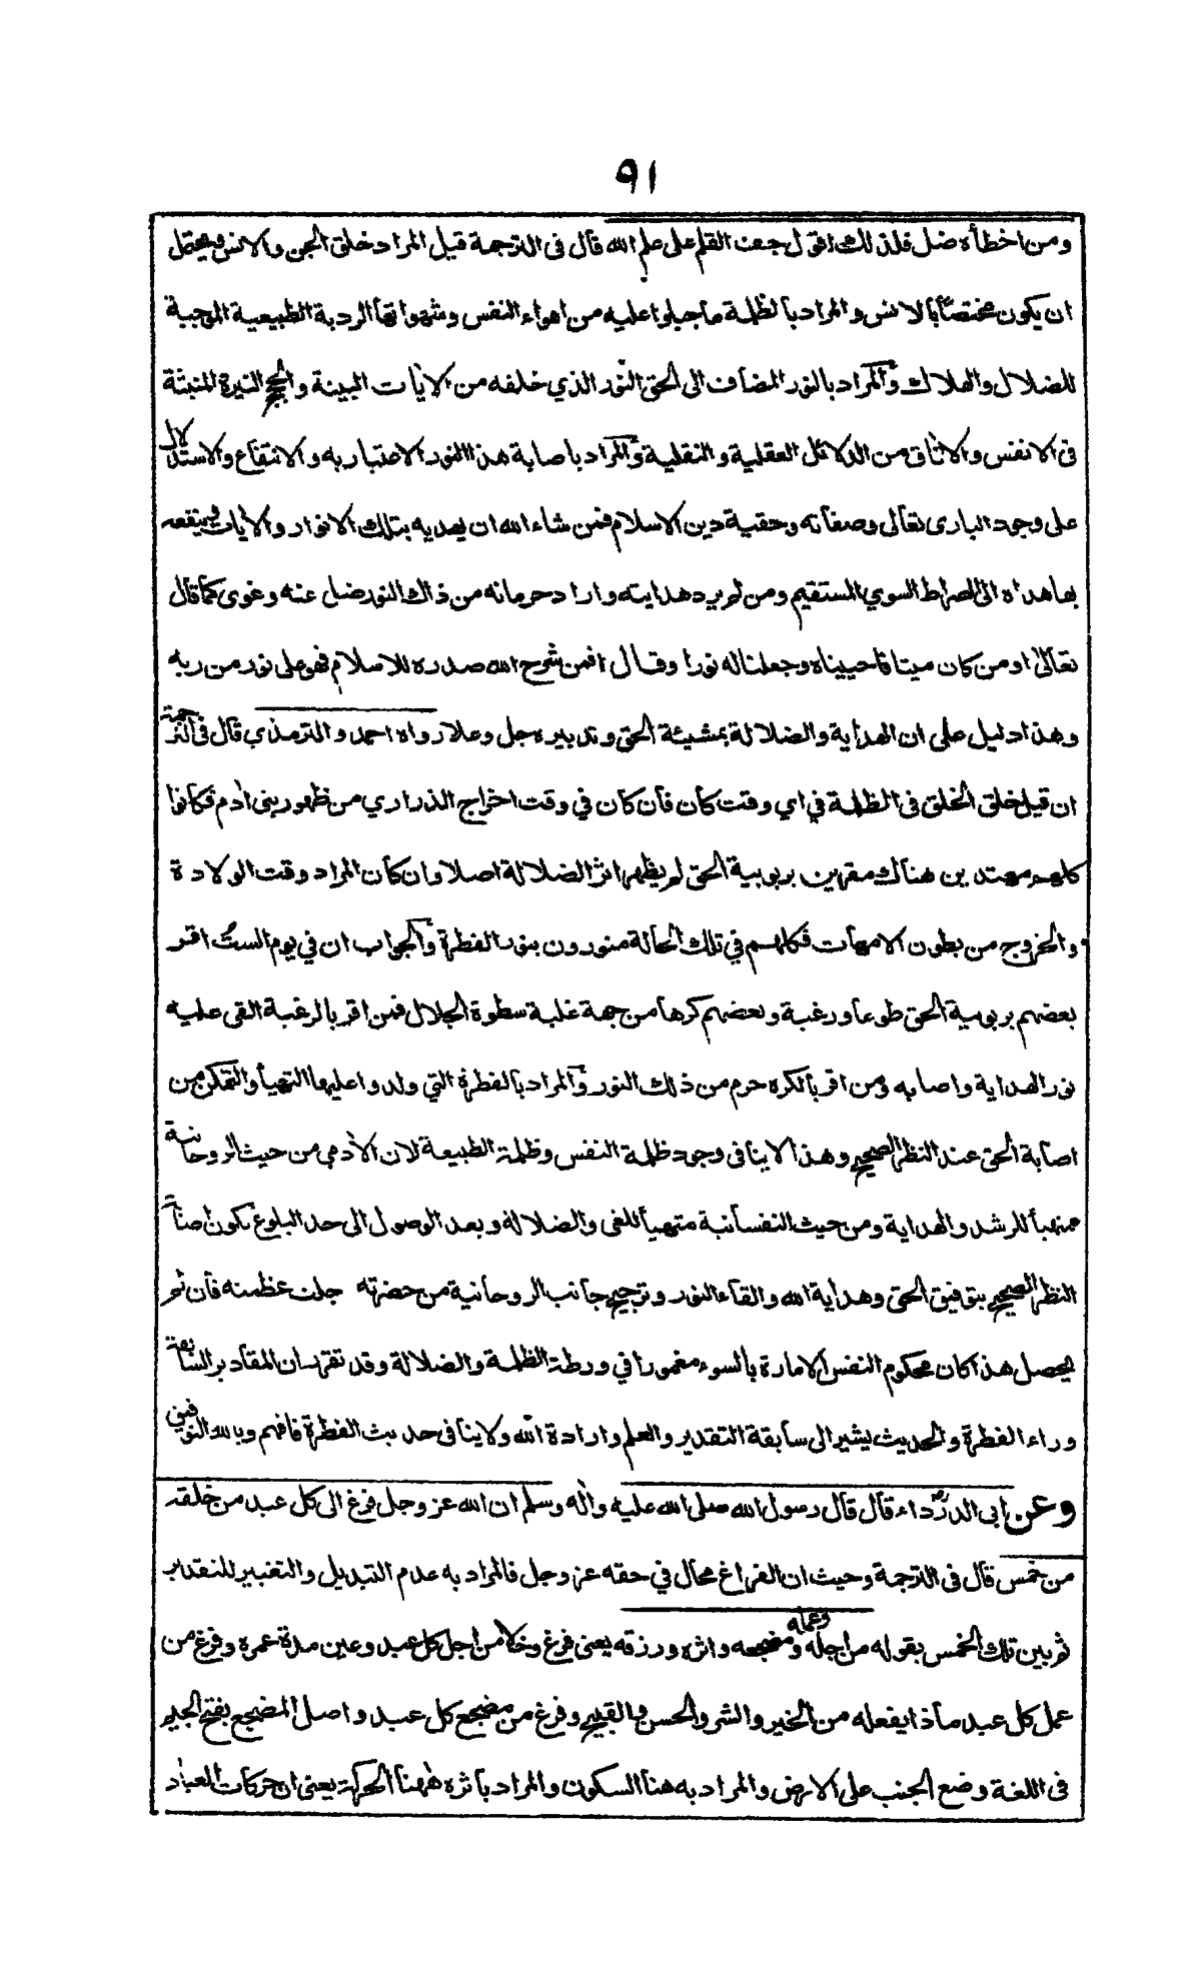 ٩١
ومن اخطأه ضل فلذلك اقول جف القلم على علم الله قال فى الترجمة قيل المراد خلق الجن والانس ويحتمل
ان يكون مختصا بالانس والمراد بالظلمة ما جبلوا عليه من اهواء النفس وشهواتها الردية الطبيعية الموجبة
للضلال والهلاك والمراد بالنور المضاف الى الحق النور الذي خلقه من الآيات المبينة والحجج النيرة المنبثة
فى الانفس والآفاق من الدلائل العقلية والنقلية والمراد باصابة هذا النور الاعتبار به والانتفاع والاستدلال
على وجود البارى تعالى وصفاته وحقية دين الاسلام فمن شاء الله ان يهديه بتلك الانوار والآيات
بها هداه الى الصراط السوي المستقيم ومن لم يرد هدايته واراد حرمانه من ذاك النور ضل عنه وغوى كما قال
تعالى او من كان ميتا فاحييناه وجعلنا له نورا وقال افمن شرح الله صدره للاسلام فهو على نور من ربه
وهذا دليل على ان الهداية والضلالة بمشيئة الحق وتدبيره جل وعلا رواه احمد والترمذي قال فى الترجمة
ان قيل خلق الخلق فى الظلمة في اي وقت كان فان كان في وقت اخراج الذراري من ظهور بنى آدم فكانوا
كلهم مهتدين هناك مقرين بربوبية الحق لم يظهر اثر الضلالة اصلا وان كان المراد وقت الولادة
والخروج من بطون الامهات فكلهم في تلك الحالة منورون بنور الفطرة والجواب ان في يوم الست اقر
بعضهم بربوبية الحق طوعا ورغبة وبعضهم كرها من جهة غلبة سطوة الجلال فمن اقر بالرغبة القى عليه
نور الهداية واصابه ومن اقر بالكره حرم من ذلك النور والمراد بالفطرة التي ولدوا عليها التهيأ والتمكن من
اصابة الحق عند النظر الصحيح وهذا لاينافى وجود ظلمة النفس وظلمة الطبيعة لان الآدمي من حيث الروحانية
متهيأ للرشد والهداية ومن حيث النفسانية متهيأ للغى والضلالة وبعد الوصول الى حد البلوغ يكون
النظر الصحيح بتوفيق الحق وهداية الله والقاء النور وترجيح جانب الروحانية من حضرته جلت عظمته فان لم
يحصل هذا كان محكوم النفس الامارة بالسوء مغمورا في ورطة الظلمة والضلالة وقد تقرر ان المقادير السابقة
وراء الفطرة والحديث يشير الى سابقة التقدير والعلم وارادة الله ولاينافى حديث الفطرة فافهم وبالله التوفيق
وعن ابى الدرداء قال قال رسول الله صلى الله عليه وآله وسلم ان الله عز وجل فرغ الى كل عبد من خلقه
من خمس قال فى الترجمة وحيث ان الفراغ محال في حقه عز وجل فالمراد به عدم التبديل والتغيير للتقدير
ثم بين تلك الخمس بقوله من اجله وعمله ومضجعه واثره ورزقه يعنى فرغ وخلا من اجل كل عبد وعين مدة عمره وفرغ من
عمل كل عبد ماذا يفعله من الخير والشر والحسن والقبيح وفرغ من مضجع كل عبد واصل المضجع بفتح الجيم
فى اللغة وضع الجنب على الارض والمراد به هنا السكون والمراد باثره ههنا الحركة يعنى ان حركات العباد